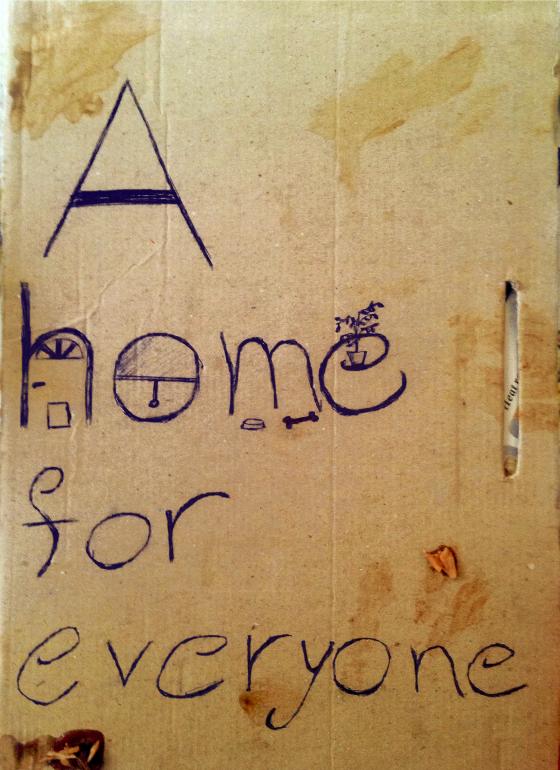 A
home
for
everyone